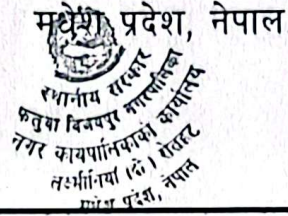 मधेश प्रदेश, नेपाल
स्थानीय सरकार
फतुवा विजयपुर नगरपालिका
नगर कार्यपालिकाको कार्यालय
रौतहट
प्रदेश, नेपाल